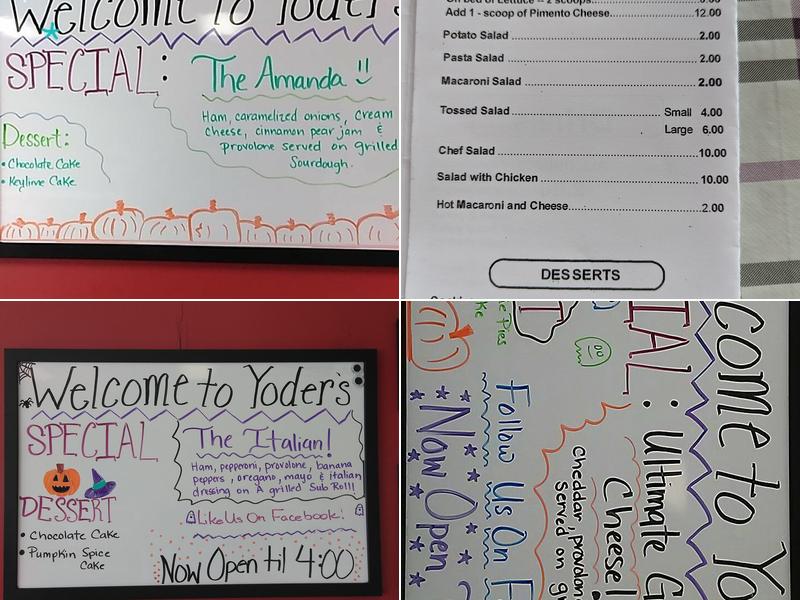 Welcome to Yoder's
SPECIAL:
The Amanda
Ham, caramelized onions, cream
cheese, cinnamon pear jam &
provolone served on grilled
Sourdough.
Dessert:
• Chocolate Cake
• Keylime Cake
Add 1 - scoop of Pimento Cheese..................12.00
Potato Salad..................2.00
Pasta Salad..................2.00
Macaroni Salad..................2.00
Tossed Salad..................Small 4.00
Large 6.00
Chef Salad..................10.00
Salad with Chicken..................10.00
Hot Macaroni and Cheese..................2.00
DESSERTS
Welcome to Yoder's
SPECIAL
The Italian!
Ham, pepperoni, provolone, banana
peppers, oregano, mayo & italian
dressing on A grilled Sub Roll!
DESSERT
Like Us On Facebook!
• Chocolate Cake
• Pumpkin Spice
Cake
Now Open til 4:00
come to Yo
IAL:
Ultimate G
Cheese!
Cheddar, provolon
Served on gr
Follow Us On F
Now Open